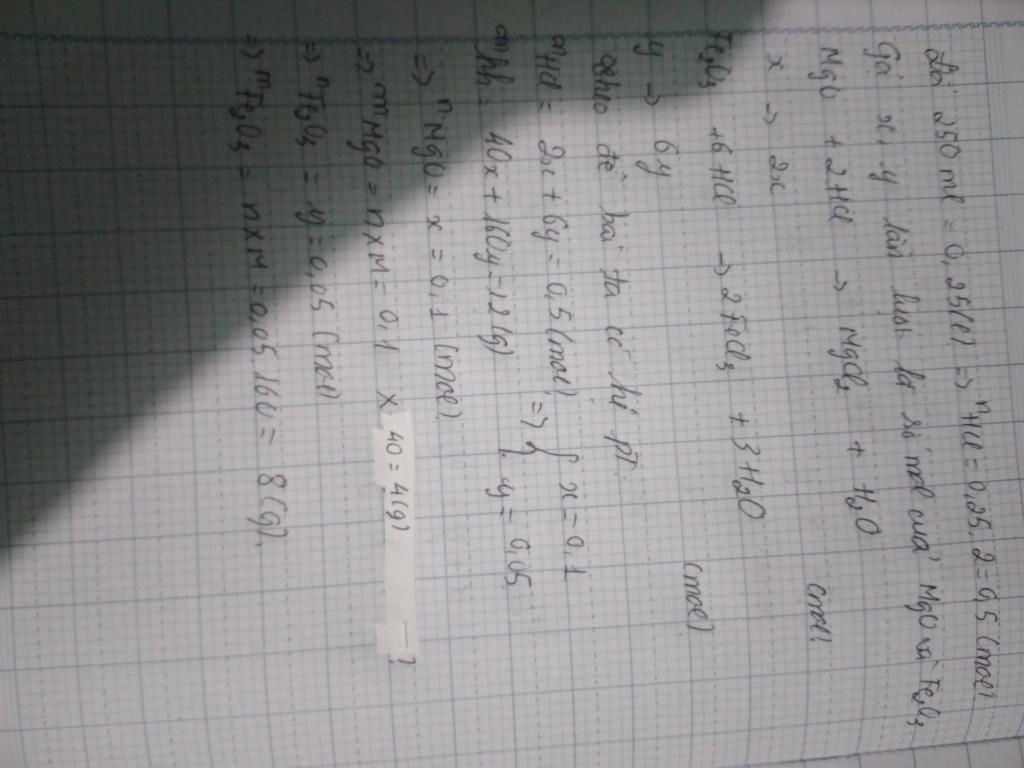 Đổi 250 ml = 0,25(l) => nHCl = 0,25.2 = 0,5 (mol)
Gọi x, y lần lượt là số mol của MgO và Fe2O3
MgO + 2HCl → MgCl2 + H2O (mol)
x → 2x
Fe2O3 + 6 HCl → 2FeCl3 + 3H2O
y → 6y (mol)
đề bài ta có hệ pt.
nHCl = 2x + 6y = 0,5 (mol) => { x = 0,1
mhh = 40x + 160y = 12(g) y = 0,05
=> nMgO = x = 0,1 (mol)
=> mMgO = n x M = 0,1 x 40 = 4(g)
=> nFe2O3 = y = 0,05 (mol)
=> mFe2O3 = n x M = 0,05.160 = 8(g).